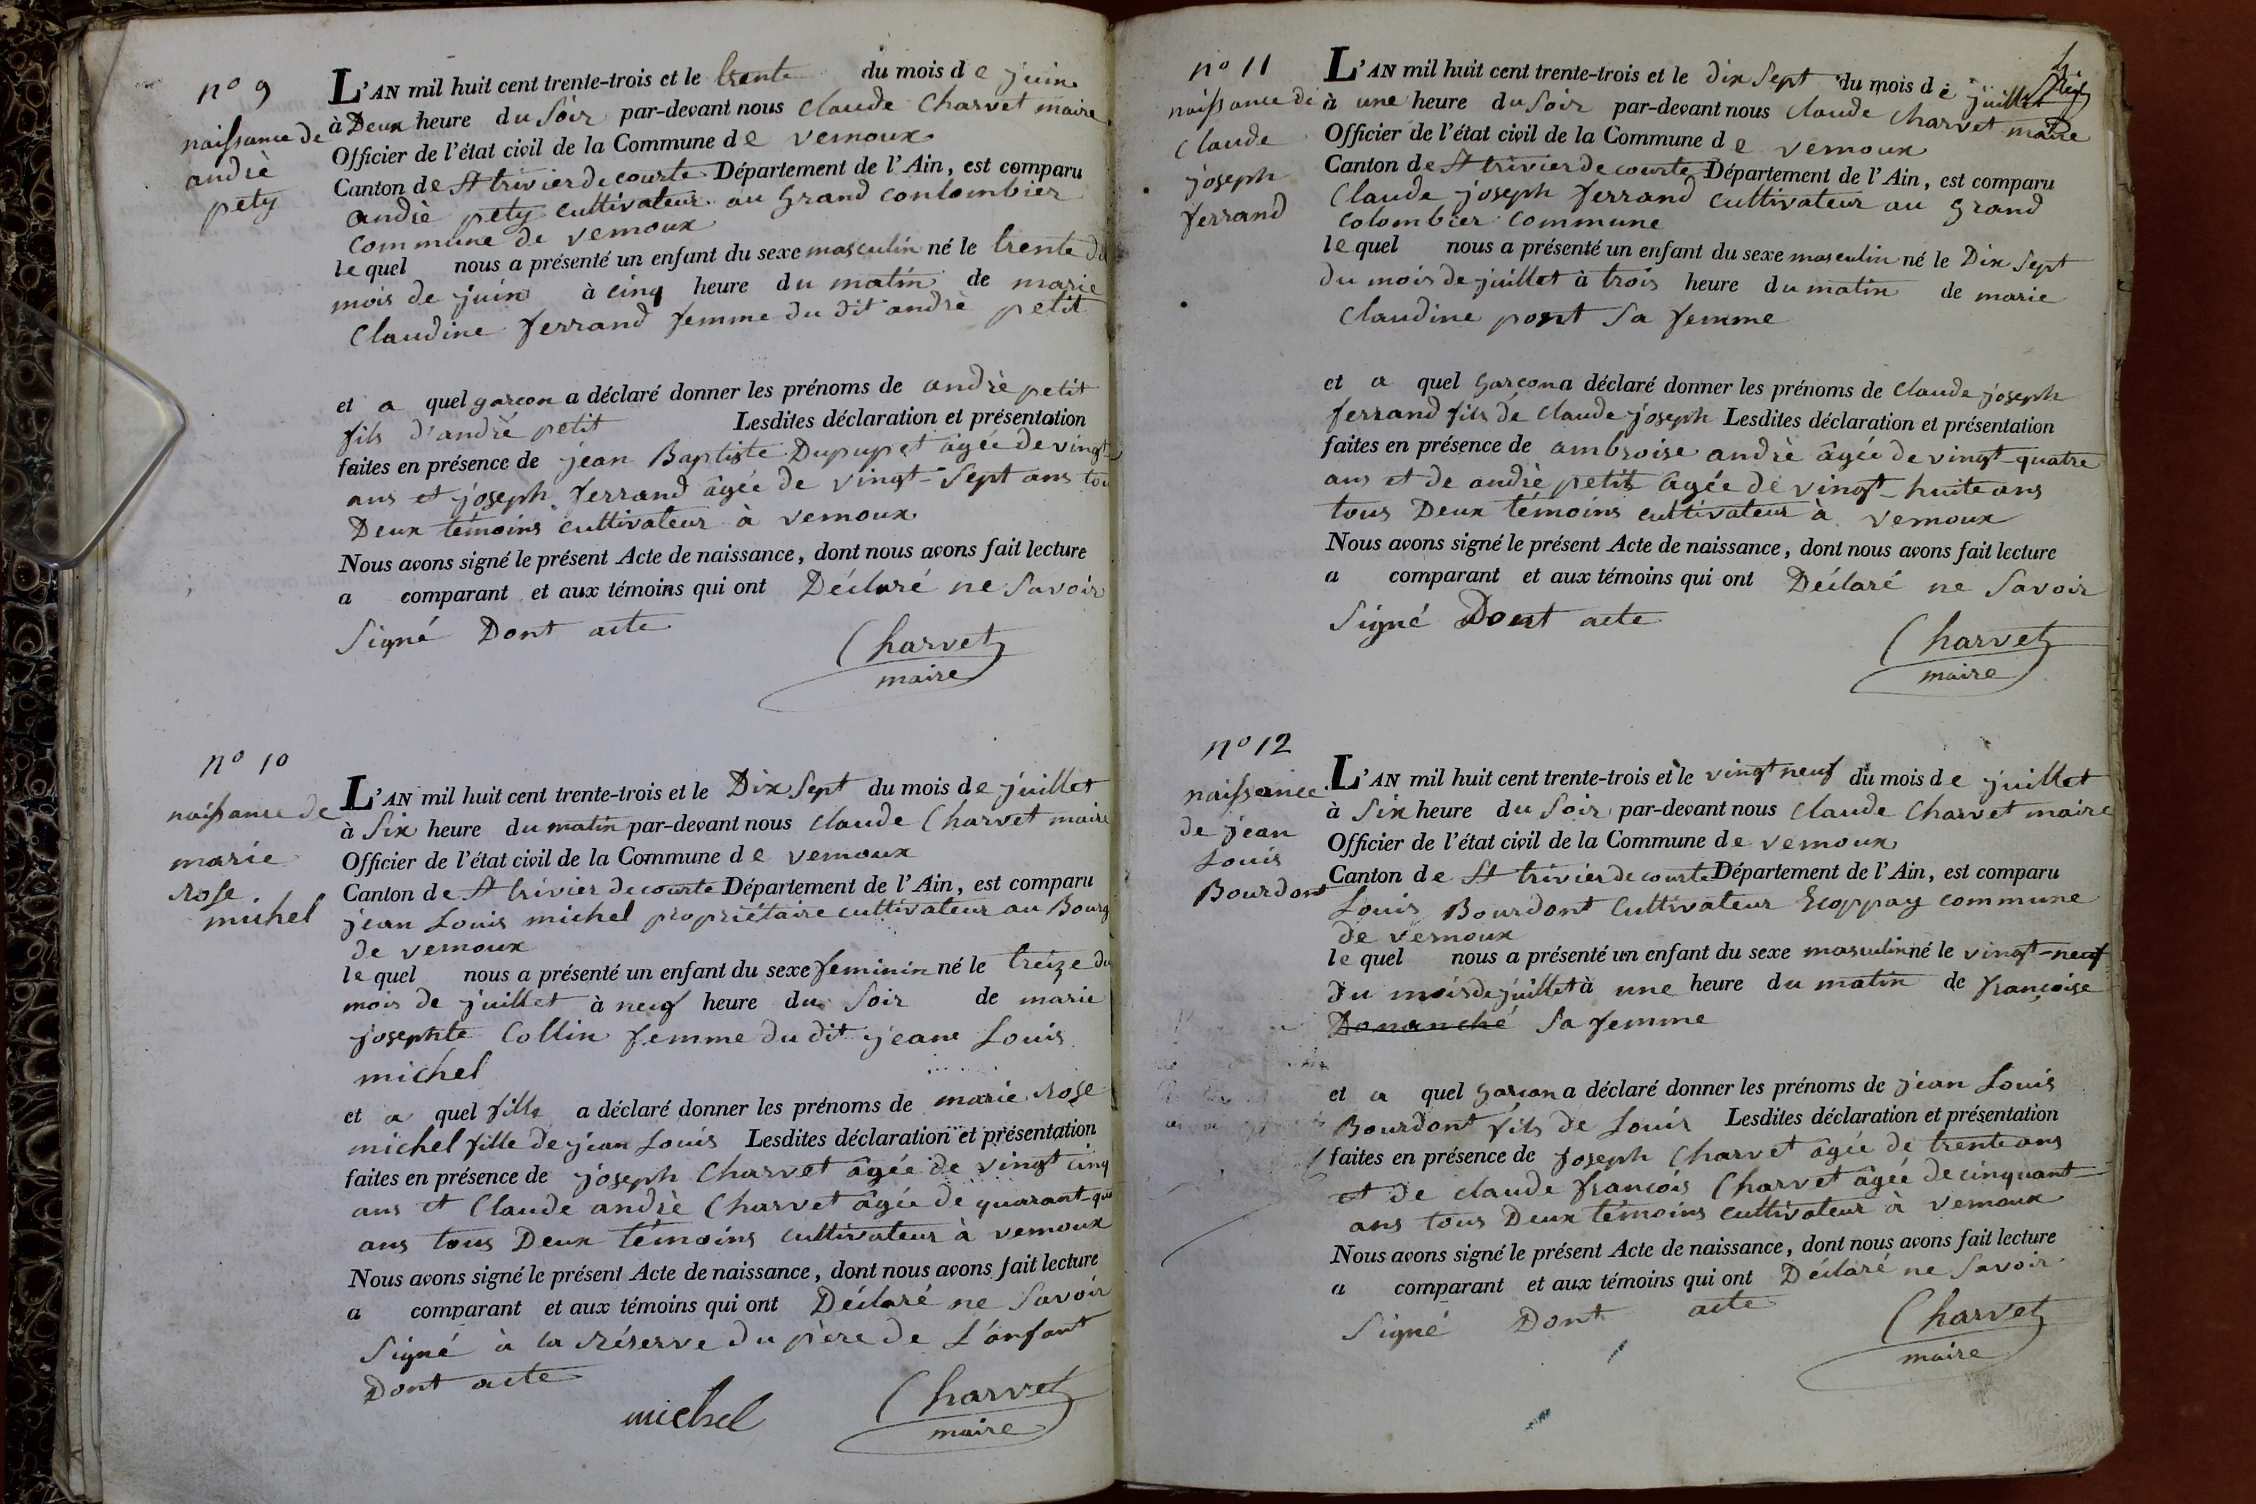 nº 9
naissance de
andrè
pety
L'AN mil huit cent trente-trois et le trente du mois de juin
à Deux heure du Soir par-devant nous Claude Charvet maire
Officier de l'état civil de la Commune de vernoux
Canton de St trivier de courte Département de l'Ain, est comparu
andrè pety cultivateur au Grand conlombier
commune de vernoux
le quel nous a présenté un enfant du sexe masculin né le trente du
mois de juin à cinq heure du matin de marie
Claudine ferrand femme du dit andrè petit
et a quel garcon a déclaré donner les prénoms de andrè petit
fils d'andrè petit Lesdites déclaration et présentation
faites en présence de jean Baptiste Dupupet âgée de vingt
ans et joseph ferrand âgée de vingt-Sept ans tou
Deux témoins cultivateur à vernoux
Nous avons signé le présent Acte de naissance, dont nous avons fait lecture
a comparant et aux témoins qui ont Déclaré ne Savoir
Signé Dont acte
Charvet
maire
nº 10
naissance de
marie
rose
michel
L'AN mil huit cent trente-trois et le Dix Sept du mois de juillet
à Six heure du matin par-devant nous Claude Charvet maire
Officier de l'état civil de la Commune de vernoux
Canton de St trivier de courte Département de l'Ain, est comparu
jean Louis michel propriétaire cultivateur au Bourg
de vernoux
le quel nous a présenté un enfant du sexe feminin né le treize du
mois de juillet à neuf heure du Soir de marie
josephte Collin femme du dit jean Louis
michel
et a quel fille a déclaré donner les prénoms de marie rose
michel fille de jean Louis Lesdites déclaration et présentation
faites en présence de joseph Charvet âgée de vingt cinq
ans et Claude andrè Charvet âgée de quarant-qua
ans tous Deux témoins cultivateur à vernoux
Nous avons signé le présent Acte de naissance, dont nous avons fait lecture
a comparant et aux témoins qui ont Déclaré ne Savoir
Signé à la réserve du père de L'anfant
Dont acte
michel
Charvet
maire
nº 11
naissance de
Claude
joseph
ferrand
L'AN mil huit cent trente-trois et le dix Sept du mois de juillet
à une heure du Soir par-devant nous Claude Charvet maire
Officier de l'état civil de la Commune de vernoux
Canton de St trivier de courte Département de l'Ain, est comparu
Claude joseph ferrand cultivateur au Grand
Colombier commune
le quel nous a présenté un enfant du sexe masculin né le Dix Sept
du mois de juillet à trois heure du matin de marie
Claudine pont Sa femme
et a quel Garcon a déclaré donner les prénoms de Claude joseph
ferrand fils de Claude joseph Lesdites déclaration et présentation
faites en présence de ambroise andrè âgée de vingt-quatre
ans et de andrè petit âgée de vingt-huite ans
tous Deux témoins cultivateur à vernoux
Nous avons signé le présent Acte de naissance, dont nous avons fait lecture
a comparant et aux témoins qui ont Déclaré ne Savoir
Signé Dont acte
Charvet
maire
nº 12
naissance
de jean
Louis
Bourdont
L'AN mil huit cent trente-trois et le vingt neuf du mois de juillet
à Six heure du Soir par-devant nous Claude Charvet maire
Officier de l'état civil de la Commune de vernoux
Canton de St trivier de courte Département de l'Ain, est comparu
Louis Bourdont Cultivateur Ecoppay commune
de vernoux
le quel nous a présenté un enfant du sexe masculin né le vingt-neuf
du mois de juillet à une heure du matin de françoise
Donanché Sa femme
et a quel Garcon a déclaré donner les prénoms de jean Louis
Bourdont fils de Louis Lesdites déclaration et présentation
faites en présence de Joseph Charvet âgée de trente ans
et de claude françois Charvet âgée de cinquant-
ans tous Deux témoins cultivateur à vernoux
Nous avons signé le présent Acte de naissance, dont nous avons fait lecture
a comparant et aux témoins qui ont Déclaré ne Savoir
Signé Dont acte
Charvet
maire